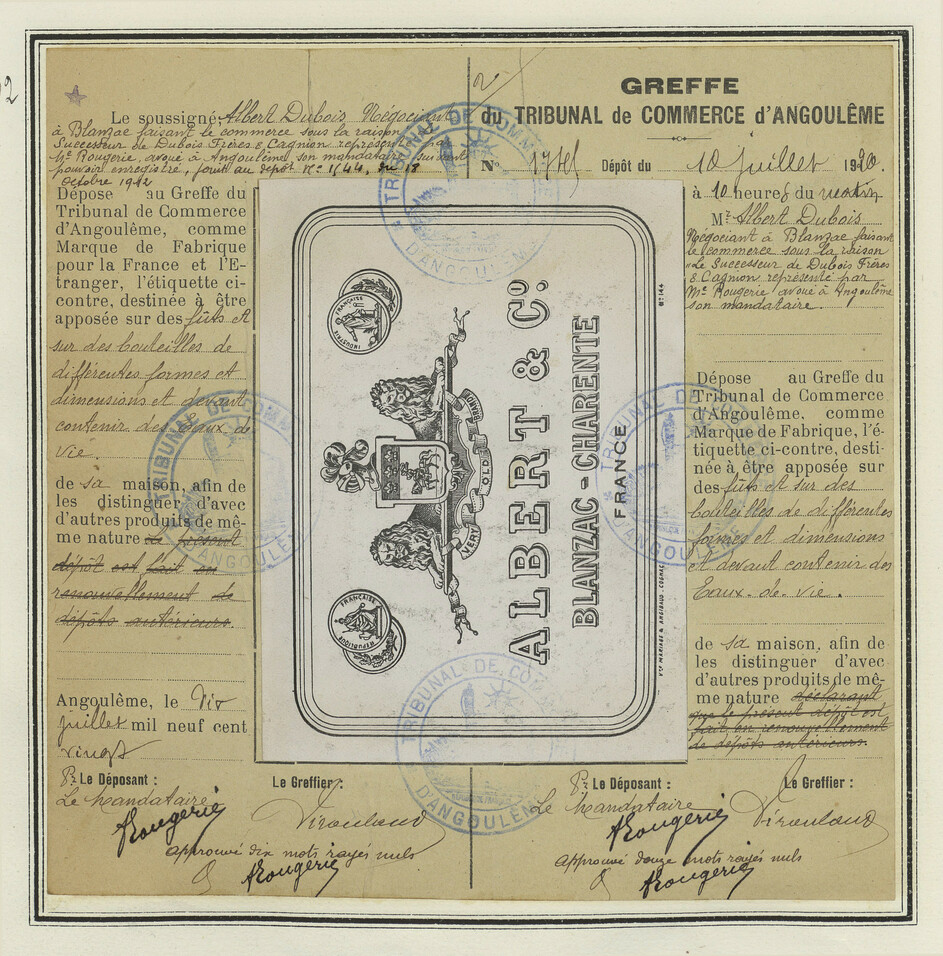 Le soussigné, Albert Dubois Négociant
à Blanzac faisant le commerce sous la raison
Successeur de Dubois Frères & Cagnion représenté par
Me Rougerie, avoué à Angoulême son mandataire suivant
pouvoir enregistré, joint au dépôt No 1544, du 18
Octobre 1912
Dépose au Greffe du
Tribunal de Commerce
d'Angoulême, comme
Marque de Fabrique
pour la France et l'E-
tranger, l'étiquette ci-
contre, destinée à être
apposée sur des fûts et
sur des bouteilles de
différentes formes et
dimensions et devant
contenir des Eaux de
Vie.
de sa maison, afin de
les distinguer d'avec
d'autres produits de mê-
me nature le présent
dépôt est fait en
renouvellement de
dépôts antérieurs.
Angoulême, le Dix
juillet mil neuf cent
vingt
Pr Le Déposant :
Le Greffier :
Le Mandataire
Rougerie
approuvé dix mots rayés nuls
Rougerie
2
GREFFE
du TRIBUNAL de COMMERCE d'ANGOULÊME
No Dépôt du 10 juillet 1920.
à 10 heures du matin
Mr Albert Dubois
Négociant à Blanzac faisant
le commerce sous la raison
"Le Successeur de Dubois Frères
& Cagnion représenté par
Me Rougerie, avoué à Angoulême
son mandataire.
Dépose au Greffe du
Tribunal de Commerce
d'Angoulême, comme
Marque de Fabrique, l'é-
tiquette ci-contre, desti-
née à être apposée sur
des fûts et sur des
bouteilles de différentes
formes et dimensions
et devant contenir des
Eaux-de-vie.
de sa maison, afin de
les distinguer d'avec
d'autres produits de mê-
me nature déclarant
que le présent dépôt est
fait en renouvellement
de dépôts antérieurs.
Pr Le Déposant :
Le Greffier :
Le Mandataire
Rougerie
approuvé douze mots rayés nuls
Rougerie
ALBERT & Co.
BLANZAC - CHARENTE
FRANCE
VERY OLD BRANDY
RÉPUBLIQUE FRANÇAISE
INDUSTRIE FRANÇAISE
No 144
TRIBUNAL DE COMM
D'ANGOULEME
TRIBUNAL DE COMM
D'ANGOULEME
TRIBUNAL DE COMM
D'ANGOULEME
TRIBUNAL DE COM
D'ANGOULEME